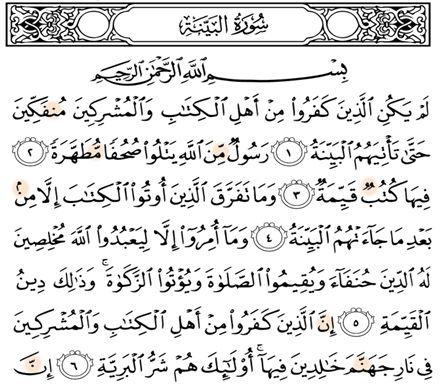 سُورَةُ البَيِّنَةِ
بِسْمِ اللَّهِ الرَّحْمَٰنِ الرَّحِيمِ
لَمْ يَكُنِ الَّذِينَ كَفَرُوا۟ مِنْ أَهْلِ الْكِتَٰبِ وَالْمُشْرِكِينَ مُنفَكِّينَ
حَتَّىٰ تَأْتِيَهُمُ الْبَيِّنَةُ ١ رَسُولٌ مِّنَ اللَّهِ يَتْلُوا۟ صُحُفًا مُّطَهَّرَةً ٢
فِيهَا كُتُبٌ قَيِّمَةٌ ٣ وَمَا تَفَرَّقَ الَّذِينَ أُوتُوا۟ الْكِتَٰبَ إِلَّا مِنۢ
بَعْدِ مَا جَآءَتْهُمُ الْبَيِّنَةُ ٤ وَمَآ أُمِرُوٓا۟ إِلَّا لِيَعْبُدُوا۟ اللَّهَ مُخْلِصِينَ
لَهُ الدِّينَ حُنَفَآءَ وَيُقِيمُوا۟ الصَّلَوٰةَ وَيُؤْتُوا۟ الزَّكَوٰةَ ۚ وَذَٰلِكَ دِينُ
الْقَيِّمَةِ ٥ إِنَّ الَّذِينَ كَفَرُوا۟ مِنْ أَهْلِ الْكِتَٰبِ وَالْمُشْرِكِينَ
فِي نَارِ جَهَنَّمَ خَٰلِدِينَ فِيهَآ ۚ أُو۟لَٰٓئِكَ هُمْ شَرُّ الْبَرِيَّةِ ٦ إِنَّ